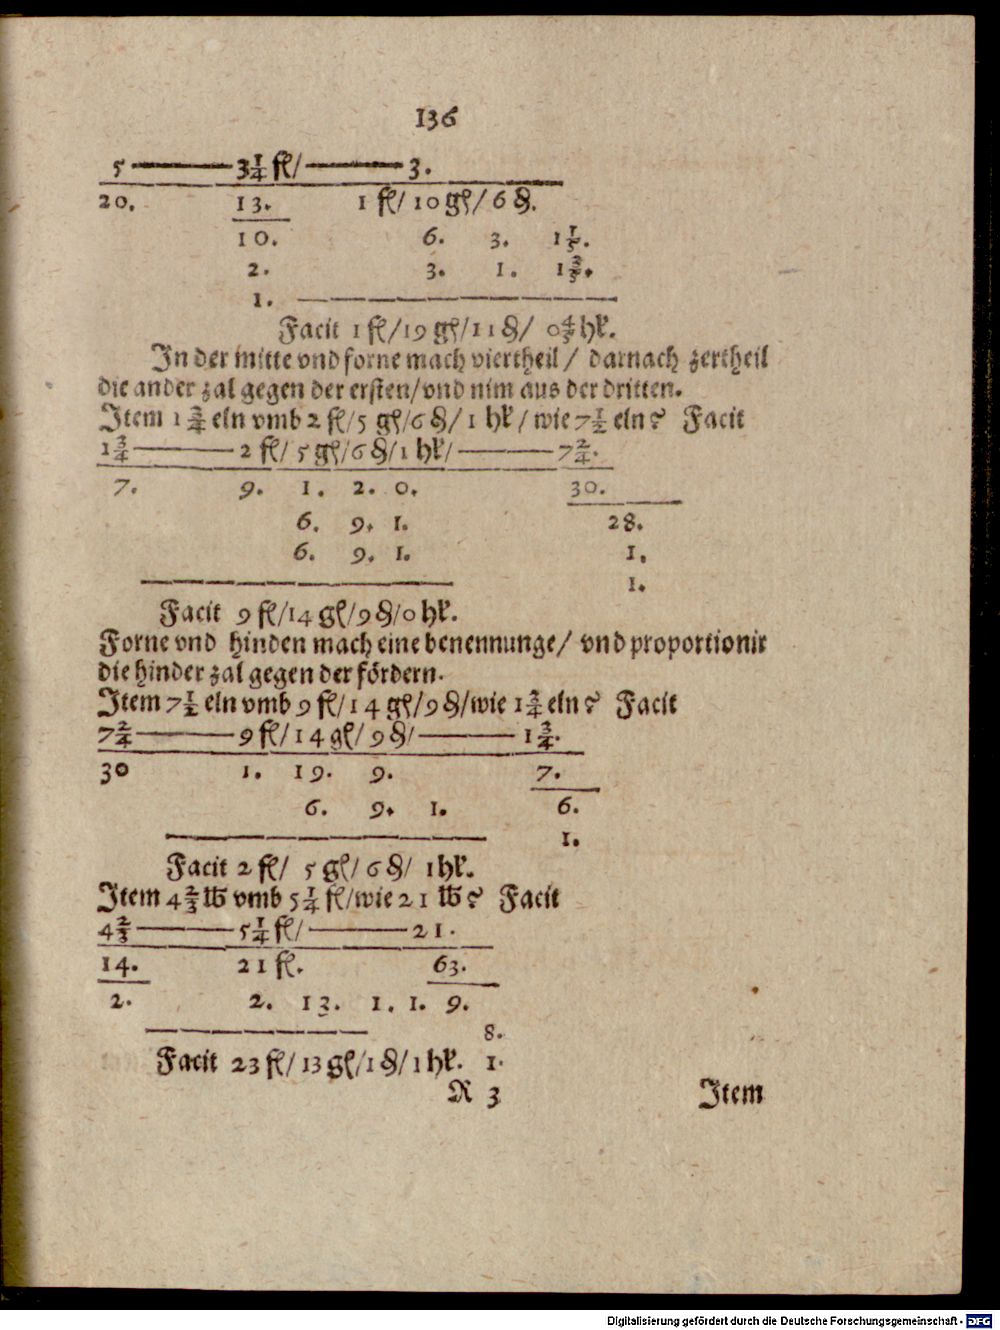 136
5 ——— 3 1/4 fl/ ——— 3.
20. 13. 1 fl/ 10 gſ/ 6 ₰.
10. 6. 3. 1 1/5.
2. 3. 1. 1 3/5.
1.
Facit 1 fl/19 gſ/11 ₰/ 0 4/5 hl.
In der mitte vnd forne mach viertheil / darnach zertheil
die ander zal gegen der ersten/vnd nim aus der dritten.
Item 1 3/4 eln vmb 2 fl/5 gſ/6 ₰/ 1 hl / wie 7 1/2 eln? Facit
1 3/4 ——— 2 fl/ 5 gſ/6 ₰/1 hl/ ——— 7 2/4.
7. 9. 1. 2. 0. 30.
6. 9. 1. 28.
6. 9. 1. 1.
1.
Facit 9 fl/14 gſ/9 ₰/0 hl.
Forne vnd hinden mach eine benennunge/ vnd proportionir
die hinder zal gegen der fördern.
Item 7 1/2 eln vmb 9 fl/1 4 gſ/9 ₰/wie 1 3/4 eln? Facit
7 2/4 ——— 9 fl/14 gſ/ 9 ₰/ ——— 1 3/4.
30 1. 19. 9. 7.
6. 9. 1. 6.
1.
Facit 2 fl/ 5 gſ/ 6 ₰/ 1 hl.
Item 4 2/3 ℔ vmb 5 1/4 fl/wie 2 1 ℔? Facit
4 2/3 ——— 5 1/4 fl/ ——— 21.
14. 21 fl. 63.
2. 2. 13. 1. 1. 9.
8.
Facit 23 fl/ 13 gſ/1 ₰/1 hl. 1.
R 3 Item
Digitalisierung gefördert durch die Deutsche Forschungsgemeinschaft - DFG